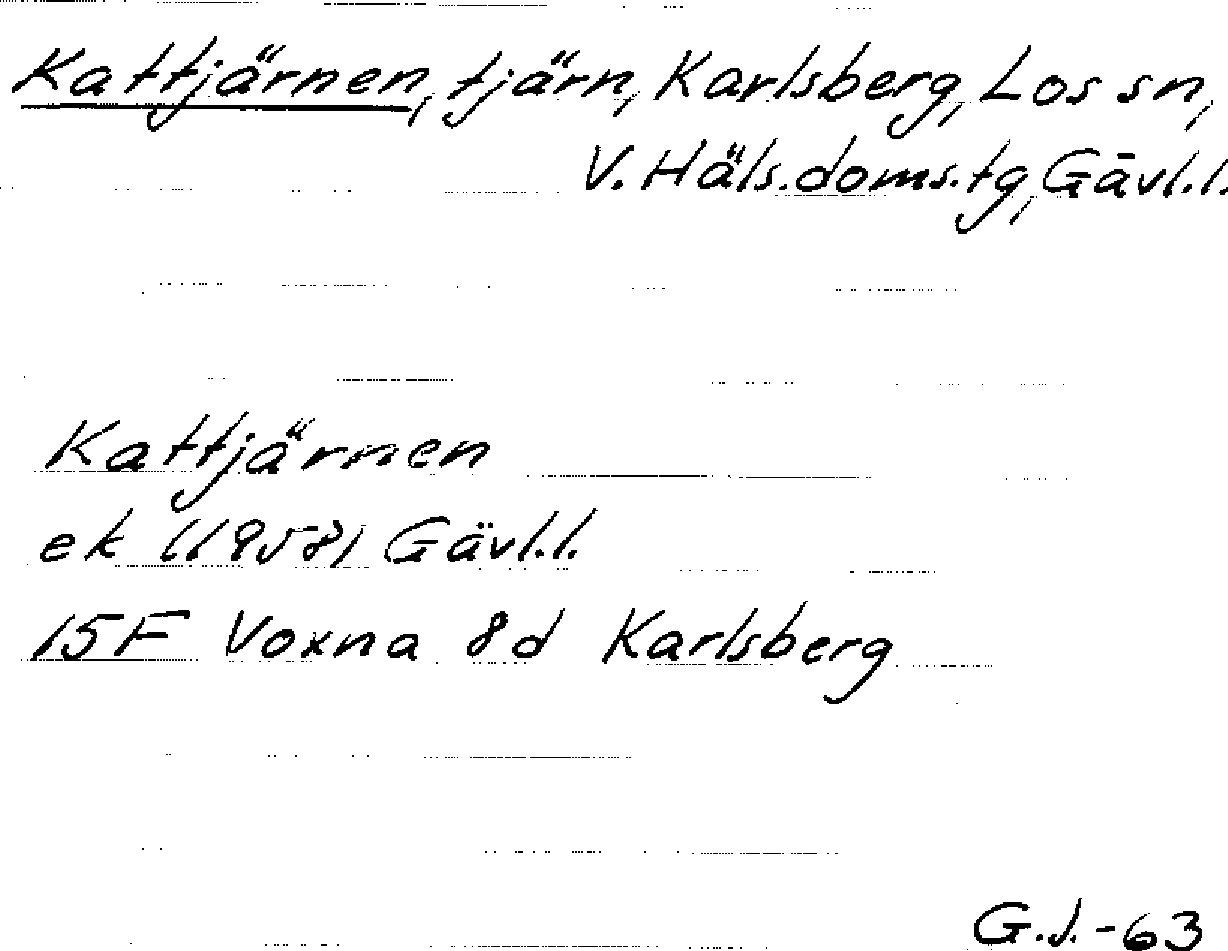 Kattjärnen, tjärn, Karlsberg, Los sn,
V. Häls.doms.tg, Gävl.l.
Kattjärnen
ek (1958) Gävl.l.
15F Voxna 8d Karlsberg
G.J.-63